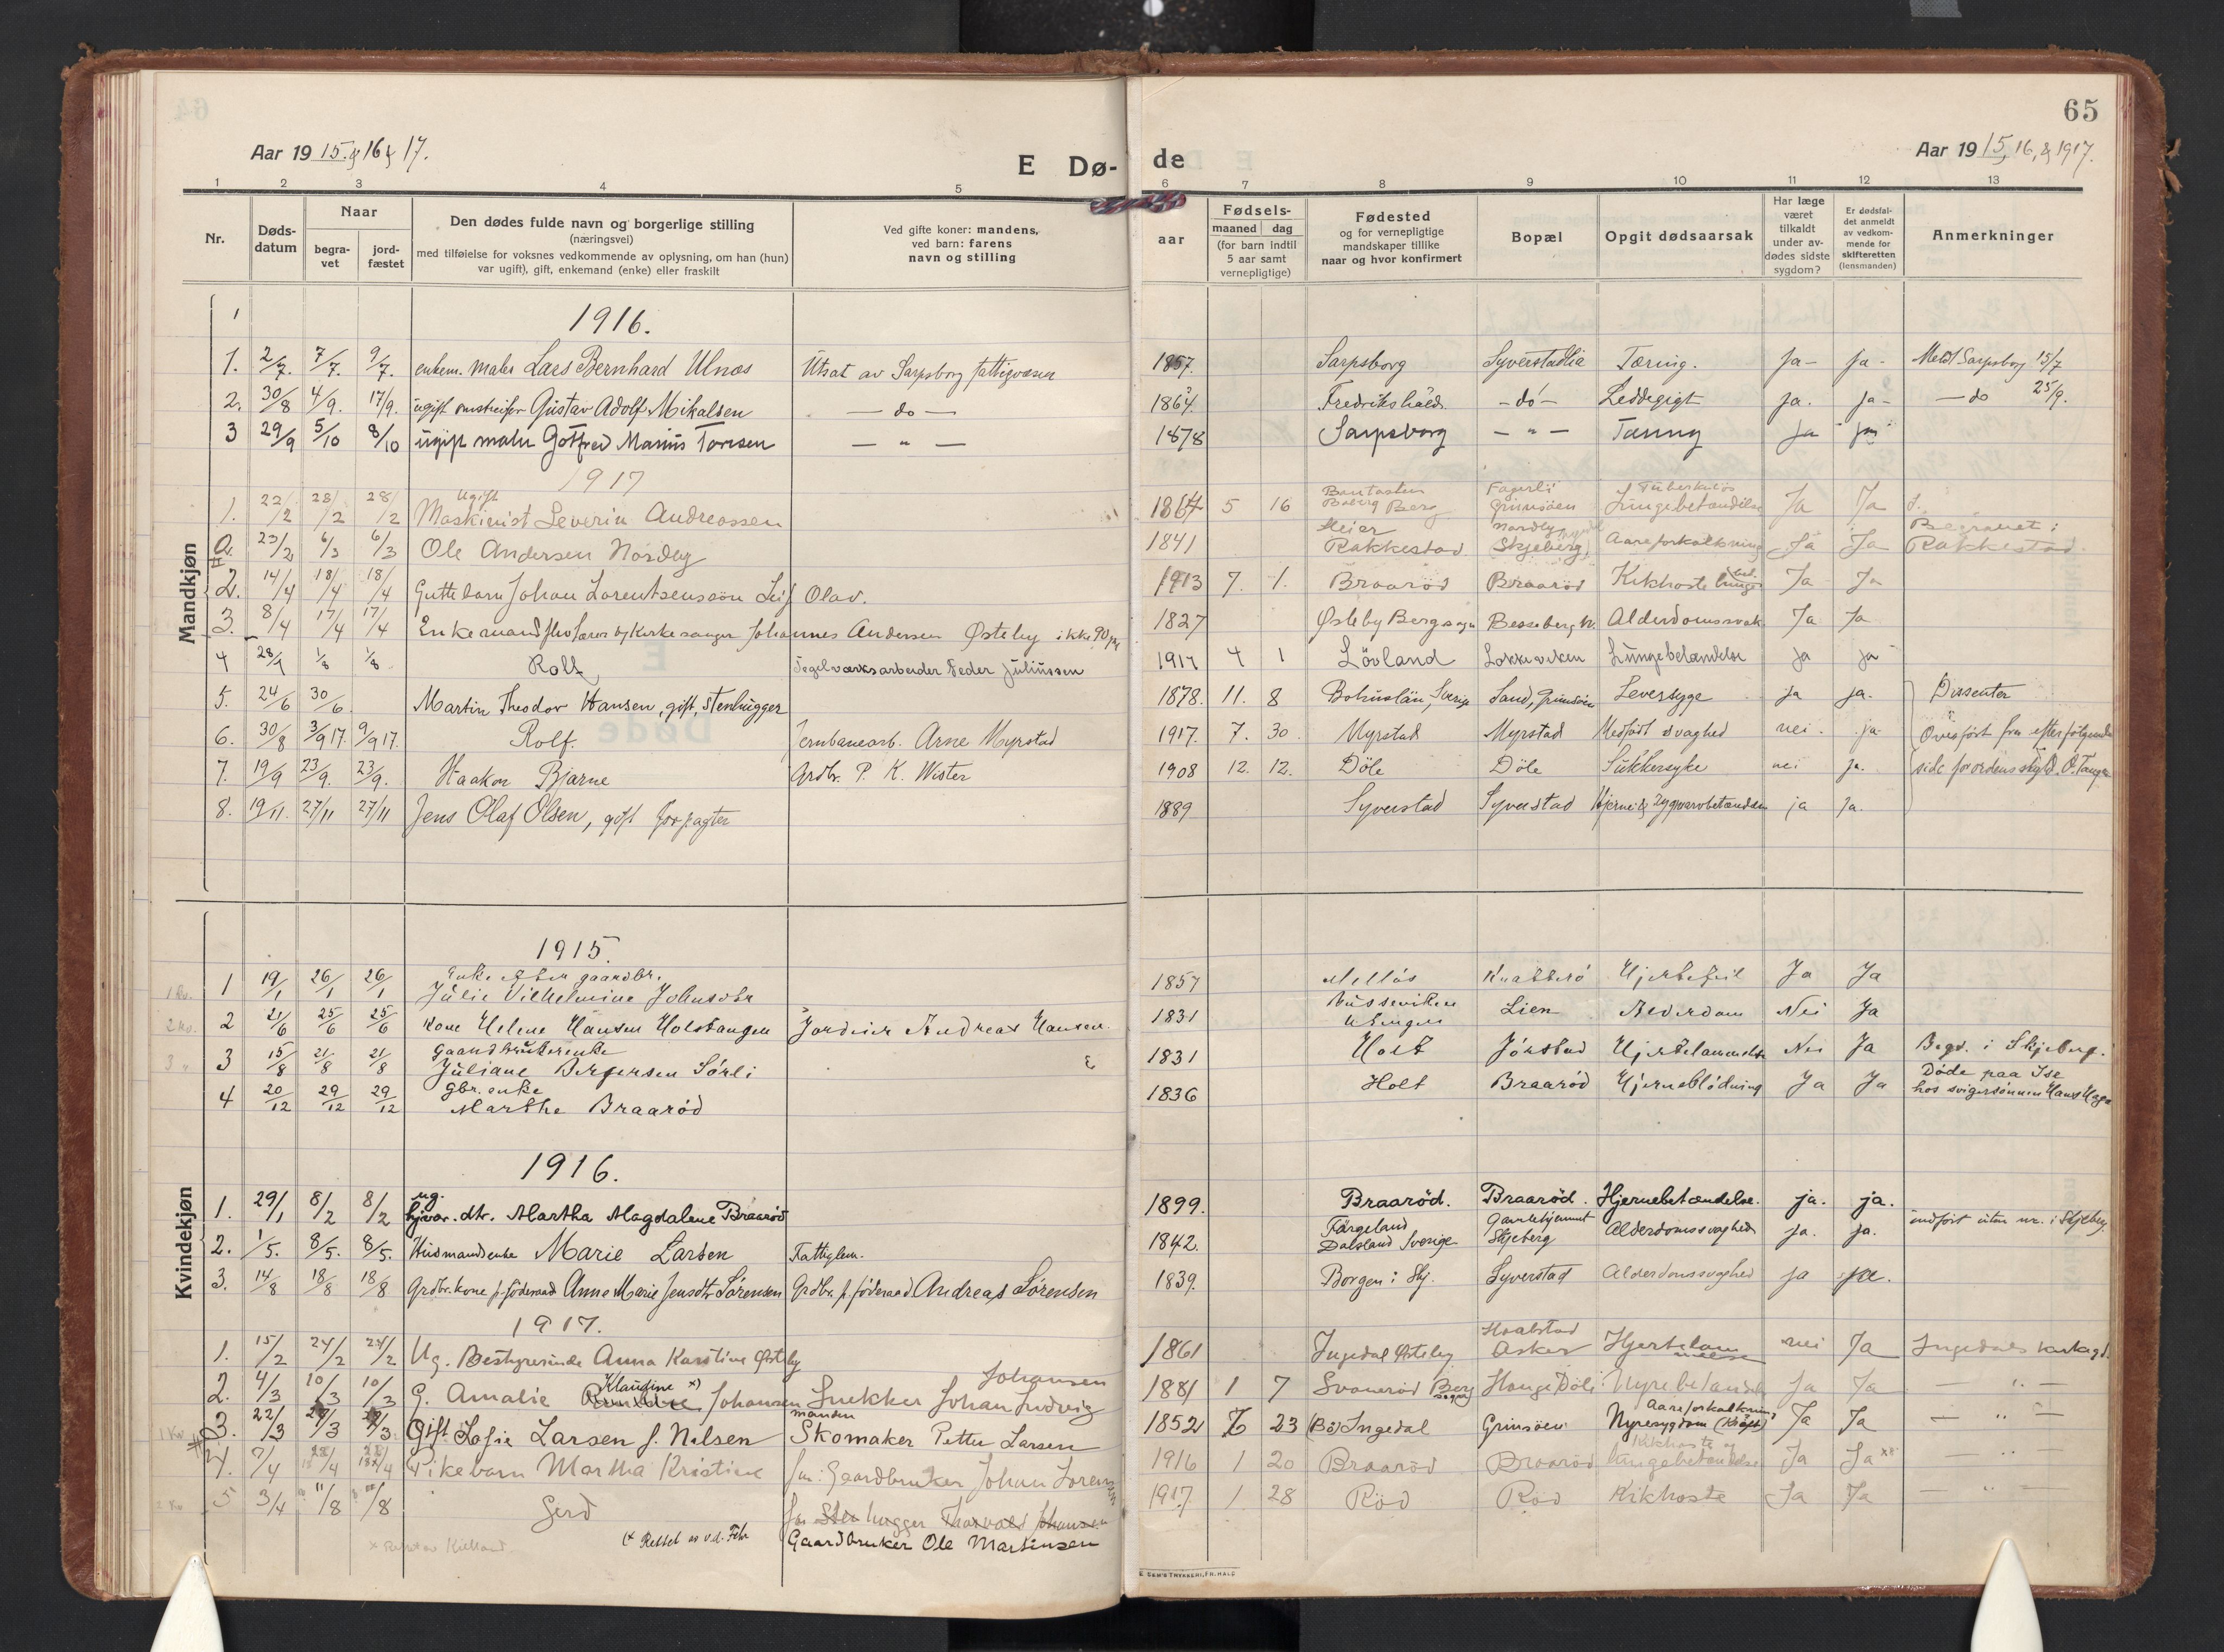 65
Aar 19 15. & 16 & 17.
E Dø-
de
Aar 19 15, 16, & 1917.
1 2 3 4 5 6 7 8 9 10 11 12 13
Nr.
Døds-
datum
Naar
begra-
vet
jord-
fæstet
Den dødes fulde navn og borgerlige stilling
(næringsvei)
med tilføielse for voksnes vedkommende av oplysning, om han (hun)
var ugift), gift, enkemand (enke) eller fraskilt
Ved gifte koner: mandens,
ved barn: farens
navn og stilling
aar
Fødsels-
maaned dag
(for barn indtil
5 aar samt
vernepligtige)
Fødested
og for vernepligtige
mandskaper tillike
naar og hvor konfirmert
Bopæl
Opgit dødsaarsak
Har læge
været
tilkaldt
under av-
dødes sidste
sygdom?
Er dødsfal-
det anmeldt
av vedkom-
mende for
skifteretten
(lensmanden)
Anmerkninger
Mandkjøn
1916.
1. 2/7. 7/7. 9/7. enkem. maler Lars Bernhard Ulnæs Utsat av Sarpsborg fattigvæsen 1857. Sarpsborg Syverstadlia Tæring. Ja- Ja- Meldt Sarpsborg 15/7
2. 30/8 4/9. 17/9. ugift omstreifer Gustav Adolf Mikalsen — do — 1864. Fredrikshald. - do - Leddegigt ja. ja- — do 25/9.
3 29/9 5/10 8/10 ugift maler Gotfred Marius Toresen — " — 1878 Sarpsborg — " — Tæring ja ja
1917
Ugift
1. 22/2 28/2 28/2 Maskinist Severin Andreassen 1864 5 16 Berg Fagerli Grimsøen Tuberkuløs Lungebetændelse Ja Ja
a. 23/2 6/3 6/3 Ole Andersen Nordby 1841 Rakkestad Nordby Skjeberg Aareforkalkning Ja Ja Begravet i Rakkestad
2. 14/4 18/4 18/4 Guttebarn Johan Lorentsenssøn Leif Olav. 1913 7. 1. Braarød Braarød Kikhoste Ja Ja
3. 8/4 17/4 17/4 Enkemand fho lærer og Kirkesanger Johannes Andersen Østeby ikke 90 1827 Østeby Berg sogn Besseberg Alderdomssvak Ja Ja
4 28/7 1/8 1/8 Rolf Teglverksarbeider Peder Juliussen 1917 4 1 Løvland Løkkeviken Lungebetændelse ja ja
5. 24/6 30/6. Martin Theodor Hansen, gift, stenhugger 1878. 11. 8 Bohuslän, Sverige Sand, Grimsøen Leversyge ja ja. Dissenter
6. 30/8 3/9 17. 9/9 17. Rolf. Jernbanearb. Arne Myrstad 1917. 7. 30. Myrstad Myrstad Medfødt svaghed nei. ja Overført fra efterfølgende
7. 19/9 23/9. 23/9. Haakon Bjarne Grdbr. P. K. Wister 1908 12. 12. Døle Døle Sukkersyke nei ja. side for ordens skyld. O. Tange
8. 19/11. 27/11 27/11 Jens Olaf Olsen, gift forpagter 1889 Syverstad Syverstad Hjerne & rygmarvbetændelse ja ja.
Kvindekjøn
1915.
1 19/1 26/1 26/1 Enke efter gaardbr. Julie Vilhelmine Johnsdtr 1857 Melløs Knatterø Hjertefeil Ja Ja
2 21/6 25/6 25/6 Kone Helene Hansen Holstangen Jordeier Andreas Hansen. 1831 Lien Alderdom Nei Ja
3 15/8 21/8 21/8 Gaardbrukerenke Juliane Bergersen Sørli 1831 Holt Jørstad Hjertelammelse Nei Ja Begr. i Skjeberg.
4 20/12 29/12 29/12 Gbr. enke Marthe Braarød 1836 Holt Braarød Hjerneblødning Ja Ja Døde paa Ise
hos svigersønnen Hans Haga
1916.
1. 29/1 8/2 8/2 ug. dtr. Martha Magdalene Braarød 1899. Braarød. Braarød. Hjernebetændelse. ja. ja.
2. 1/5. 8/5. 8/5. Husmandsenke Marie Larsen Fattiglem. 1842. Färgeland Dalsland Sverige Gamlehjemmet Skjeberg Alderdomssvaghed ja. ja. indført uten nr. i Skjeberg
3. 14/8 18/8 18/8 Grdbr. kone på føderaad Anne Marie Jensdtr Sørensen Grdbr. på føderaad Andreas Sørensen 1839. Borgen i Skj. Syverstad Alderdomssvaghed ja ja.
1917.
1. 15/2 24/2 24/2 Ug. Bestyrerinde Anna Karstine Østeby 1861 Ingedal Østeby Hvalstad Asker Hjertelammelse nei Ja Ingedals kirkegd.
2. 4/3 10/3 10/3 G. Amalie Klaudine x) Johansen Snekker Johan Ludvig Johansen 1881 1 7 Svanerød Berg sogn Hauge Døle Nyrebetændelse Ja Ja — " —
3. 22/3 29/3 29/3 Gift Sofie Larsen f. Nilsen manden Skomaker Petter Larsen 1852 7 23 (Bø) Ingedal Grimsøen Aareforkalkning Nyresygdom (Kræft) Ja Ja — " —
4. 7/4 Pikebarn Martha Kristine far: Gaardbruker Johan Lorentzen 1916 1 20 Braarød Braarød Kikhoste og lungebetændelse Ja Ja — " —
5 3/4 11/8 11/8 Gerd far Stenhugger Thorvald Johansen 1917 1 28 Rød Rød Kikhoste Ja Ja — " —
Gaardbruker Ole Martinsen